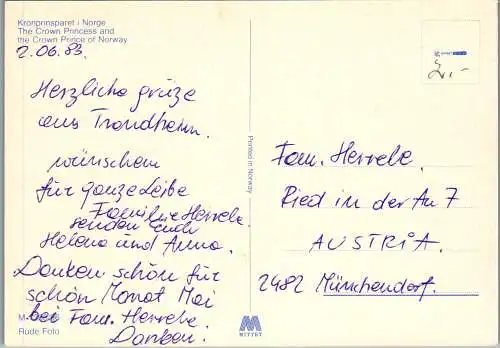 Kronprinsparet i Norge
The Crown Princess and
the Crown Prince of Norway
2.06.83.
Herzliche grüze
aus Trondheim.
wünschem
für ganze Leibe
Familie Herrele.
senden Euch
Helena und Anna.
Danken schön für
schön Monat Mai
bei Fam. Herrele.
Danken.
Rude Foto
Printed in Norway
MITTET
2,-
Fam. Herrele.
Ried in der Au 7
AUSTRIA.
2482 Münchendorf.